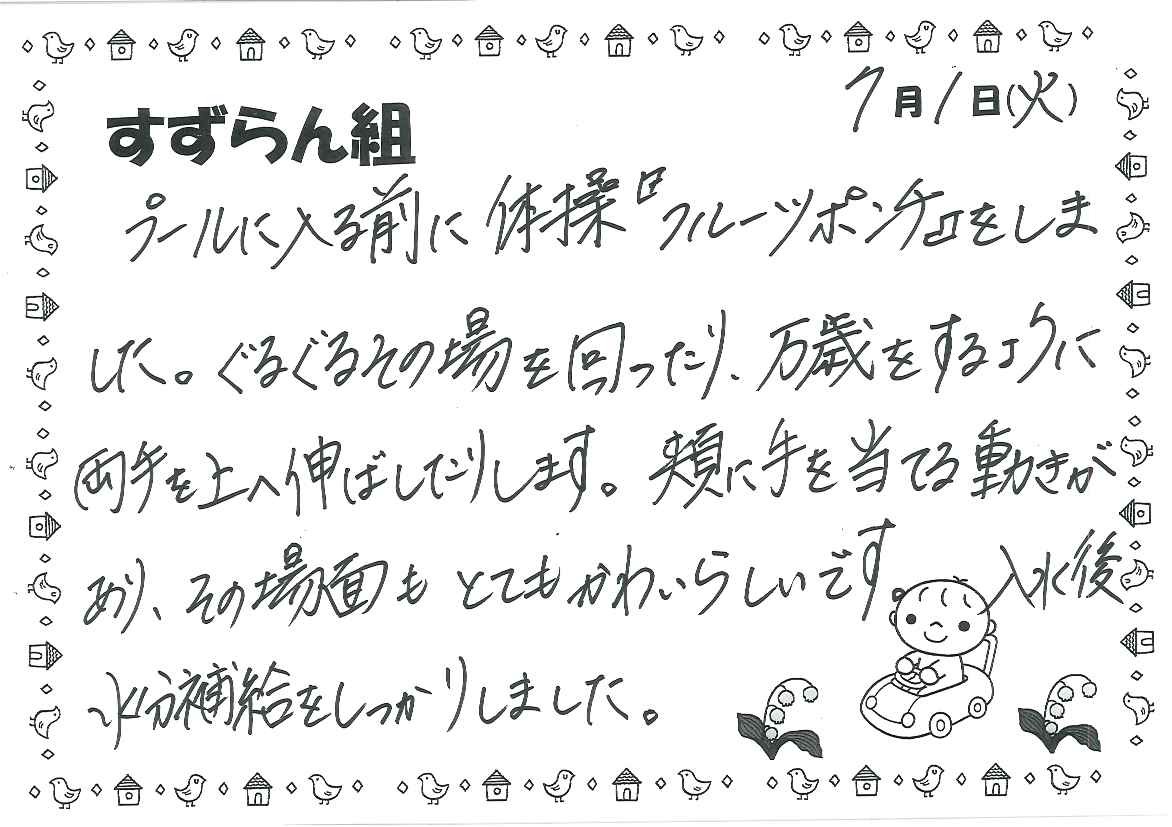 7月1日(火)
すずらん組
プールに入る前に体操『フルーツポンチ』をしま
した。ぐるぐるその場を回ったり、万歳をするように
両手を上へ伸ばしたりします。頬に手を当てる動きが
あり、その場面もとてもかわいらしいです。入水後
水分補給をしっかりしました。